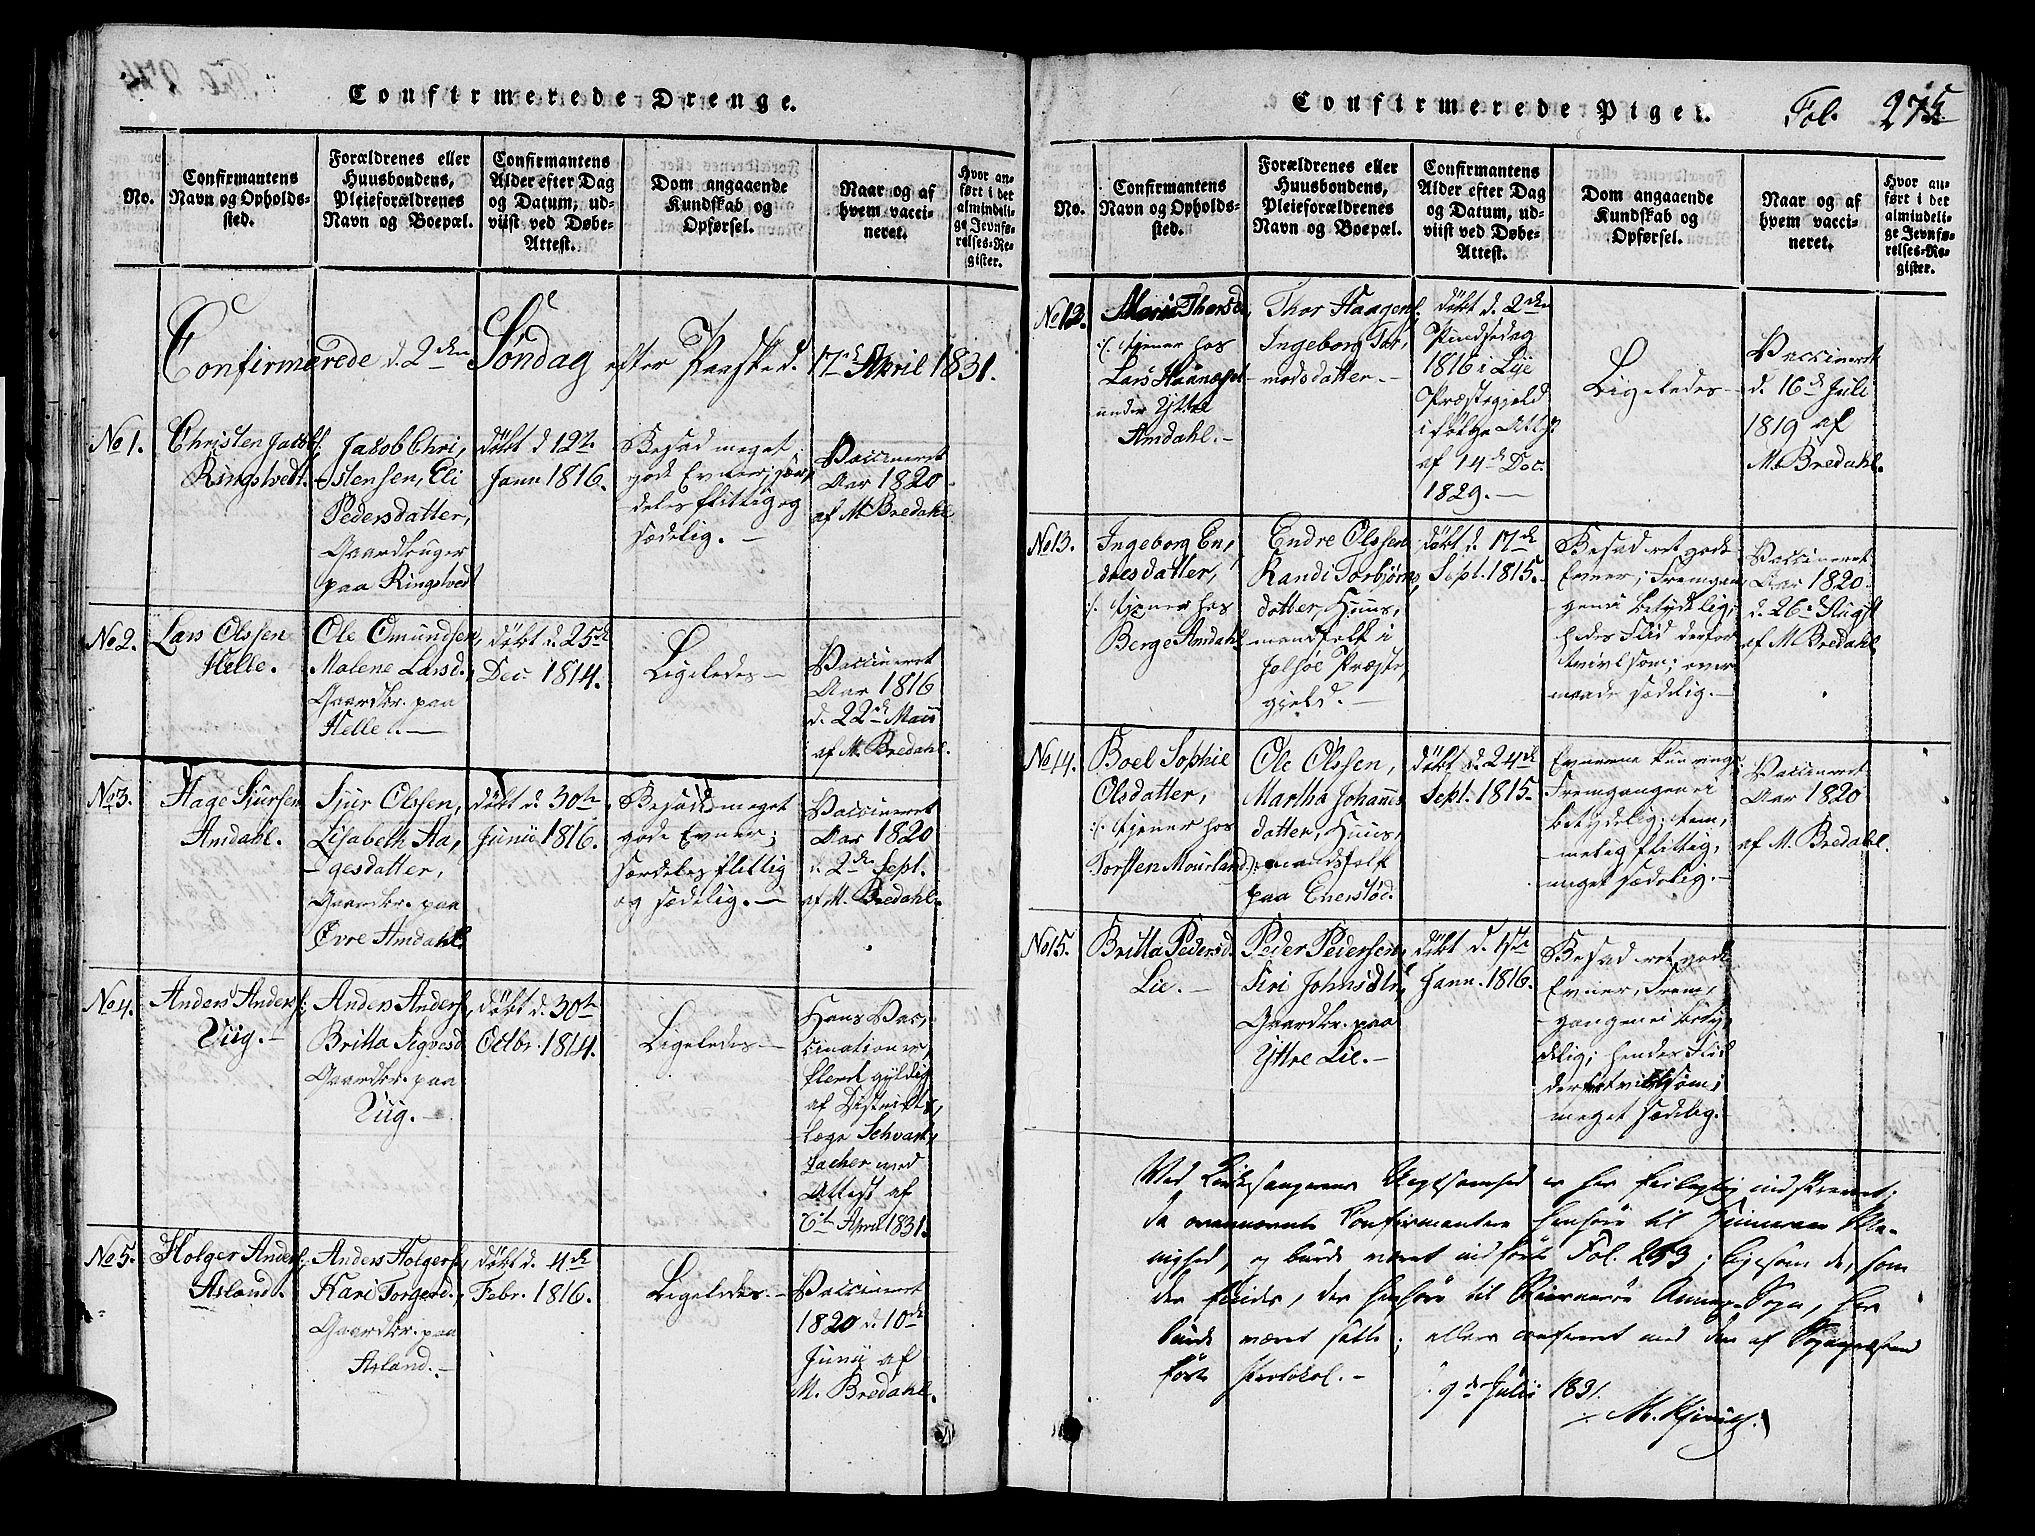 Confirmerede Drenge.
No.
Confirmantens
Navn og Opholds-
sted.
Forældrenes eller
Huusbondens,
Pleieforældrenes
Navn og Boepæl.
Confirmantens
Alder efter Dag
og Datum, ud-
viist ved Døbe-
Attest.
Dom angaaende
Kundskab og
Opførsel.
Naar og af
hvem vacci-
neret.
Hvor an-
ført i det
almindeli-
ge Jevnfø-
relses-Re-
gister.
Confirmerede d. 2den Søndag efter Paaske d. 17de April 1831.
No 1.
Christen Jacobs.
Ringstvedt.
Jacob Chri,
stensen, Eli
Pedersdatter,
Gaardbruger
paa Ringstvedt
døbt d 12te
Janu 1816.
Besad meget
gode Evner; sær,
deles flittig og
sædelig. —
Vaccineret
Aar 1820
af M. Bredahl
No 2.
Lars Olssen
Helle.
Ole Omundsen,
Malene Larsd.
Gaardbr. paa
Helle. —
døbt d. 25de
Dec 1814.
Ligeledes —
Vaccineret
Aar 1816
d. 22de Maii
af M. Bredahl.
No 3.
Hage Sjursen
Amdahl.
Sjur Olssen,
Lisabeth Aa,
gesdatter,
Gaardbr. paa
Øvre Amdahl
døbt d. 30te
Junii 1816.
Besad meget
gode Evner;
særdeles flittig
og sædelig. —
Vaccineret
Aar 1820
d. 2den Sept.
af M. Bredahl.
No 4.
Anders Anders.
Viig. —
Anders Anders,
Britta Sigvesd
Gaardbr. paa
Viig. —
døbt d. 30te
Octbr. 1814.
Ligeledes —
Hans Vac,
cination er,
klæret gyldig
af Districts,
læge Schvart,
zacher med
Attest af
6te April 1831.
No 5.
Holger Anders.
Asland.
Anders Holgers,
Kari Torgersd.,
Gaardbr. paa
Asland. —
døbt d. 4de
Febr. 1816.
Ligeledes. —
Vaccineret
1820 d. 10de
Junii af
M. Bredahl.
Confirmerede Piger. Fol. 275
No.
Confirmantens
Navn og Opholds-
sted.
Forældrenes eller
Huusbondens,
Pleieforældrenes
Navn og Boepæl.
Confirmantens
Alder efter Dag
og Datum, ud-
viist ved Døbe-
Attest.
Dom angaaende
Kundskab og
Opførsel.
Naar og af
hvem vacci-
neret.
Hvor an-
ført i det
almindeli-
ge Jevnfø-
relses-Re-
gister.
No 12.
Maria Thorsd.
tjener hos
Lars
under Yttre
Amdahl. —
Thor Haagens,
Ingeborg Tor,
modsdatter. —
døbt d. 2den
Pindsedag
1816 i Lye
Præstegjeld
ifølge Att.
af 14de Dec.
1829. —
Ligeledes —
Vaccineret
d. 16de Juli
1819 af
M. Bredahl.
No 13.
Ingeborg En,
dresdatter,
tjener hos
Berge Amdahl
Endre Olssen
Randi Torbjørns,
datter, Huus,
mandsfolk i
Jelsøe Præste,
gjeld. —
døbt d. 17de
Sept. 1815.
Besad ret gode
Evner; Fremgan,
gen ei betydelig;
hendes Flid derfor
tvivlsom; over
maade sædelig. —
Vaccineret
Aar 1820
d. 26de Augst
af M. Bredahl
No 14.
Boel Sophie
Olsdatter,
tjener hos
Torsten Mourland
Ole Olssen,
Martha Johannes
datter, Huus,
mandsfolk
paa Enerstød.
døbt d. 24de
Sept. 1815.
Evnerne kun ringe
Fremgangen ei
betydelig; tem,
melig flittig,
meget sædelig. —
Vaccineret
Aar 1820
af M. Bredahl.
No 15.
Britta Pedersd.
Lie. —
Peder Pedersen,
Siri Johnsdtr,
Gaardbr. paa
Yttre Lie. —
døbt d. 1ste
Jann. 1816.
Besad ret gode
Evner, Frem,
gangen ei bety,
delig; hendes Flid
derfor tvivlsom;
meget sædelig.
Ved Kirkesangerens Uagtsomhed er her feilagtig indskrevet;
da ovennævnte Confirmantere henhøre til
og burde været indført Fol. 253; ligesom de, som
der findes, der henhøre til Annex-Sogn, her
burde været satte; ellers confereret med den af
førte Protokol. —
9de Julii 1831.